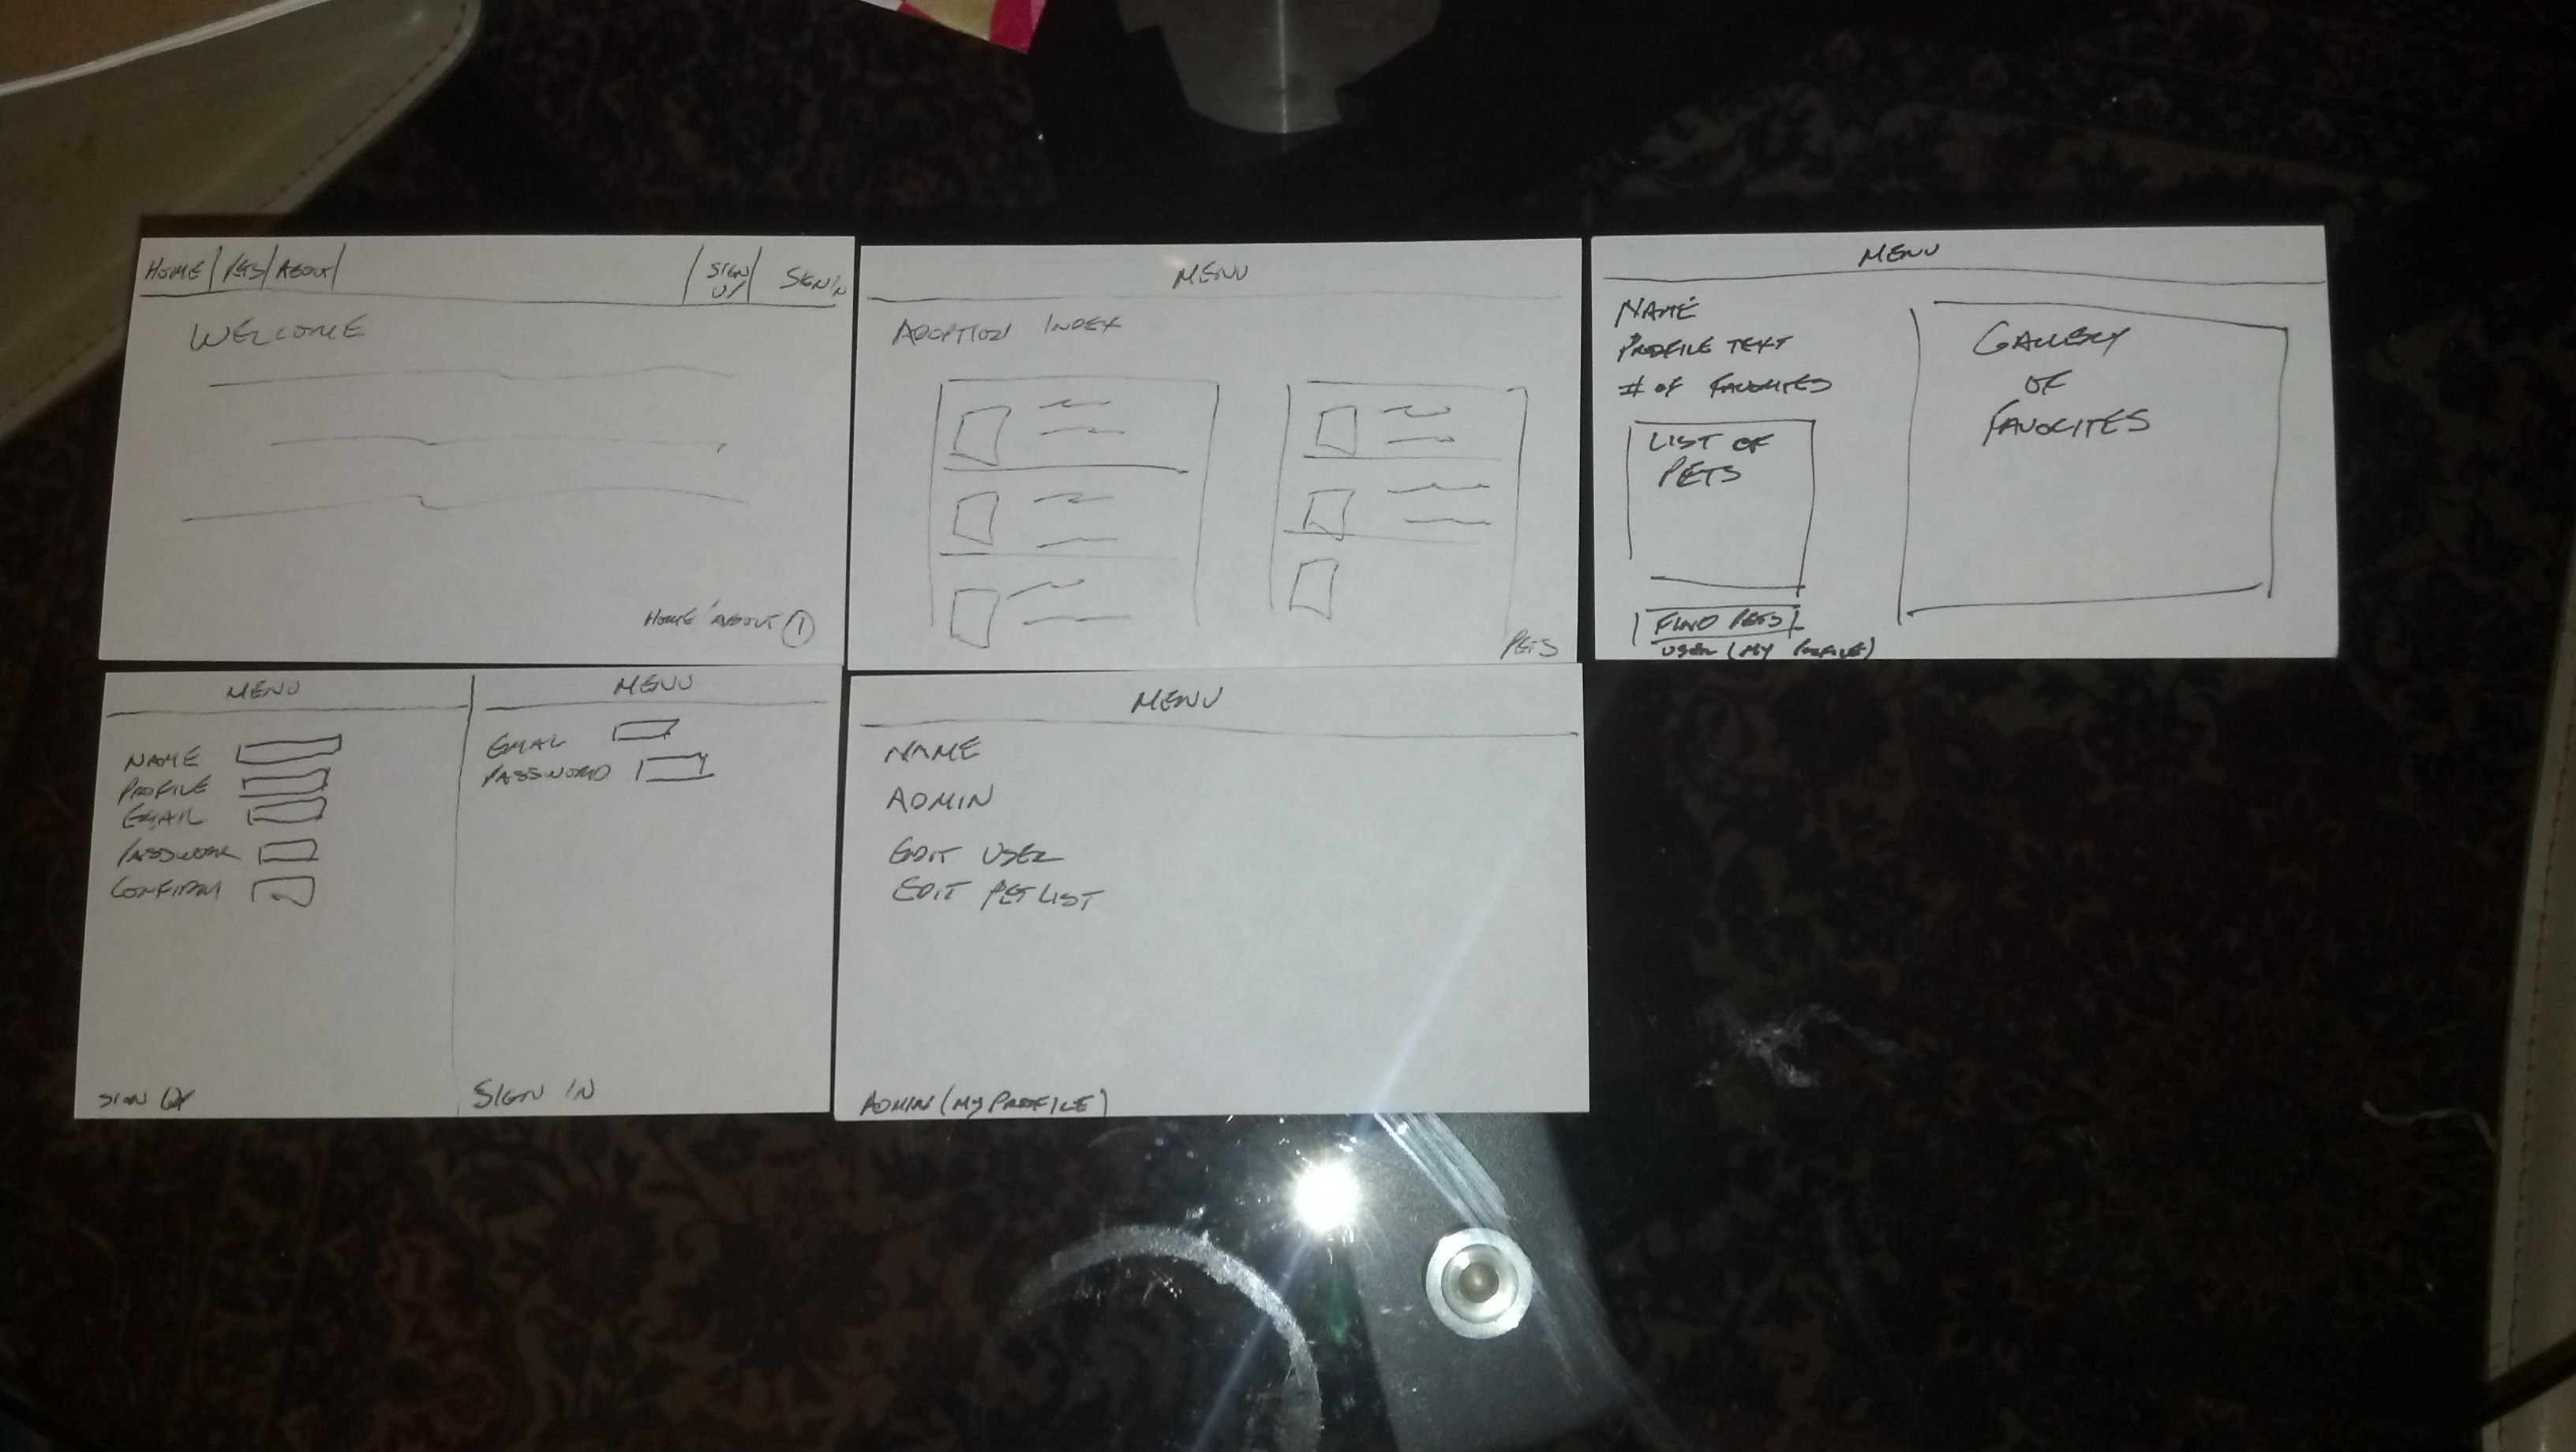 HOME PETS ABOUT SIGN UP SIGN IN
WELCOME
HOME/ABOUT 1
MENU
ADOPTION INDEX
PETS
MENU
NAME
PROFILE TEXT
# OF FAVORITES
LIST OF
PETS
FIND PETS
USER (MY PROFILE)
GALLERY
OF
FAVORITES
MENU
NAME
PROFILE
EMAIL
PASSWORD
CONFIRM
SIGN UP
MENU
EMAIL
PASSWORD
SIGN IN
MENU
NAME
ADMIN
EDIT USER
EDIT PET LIST
ADMIN (MY PROFILE)